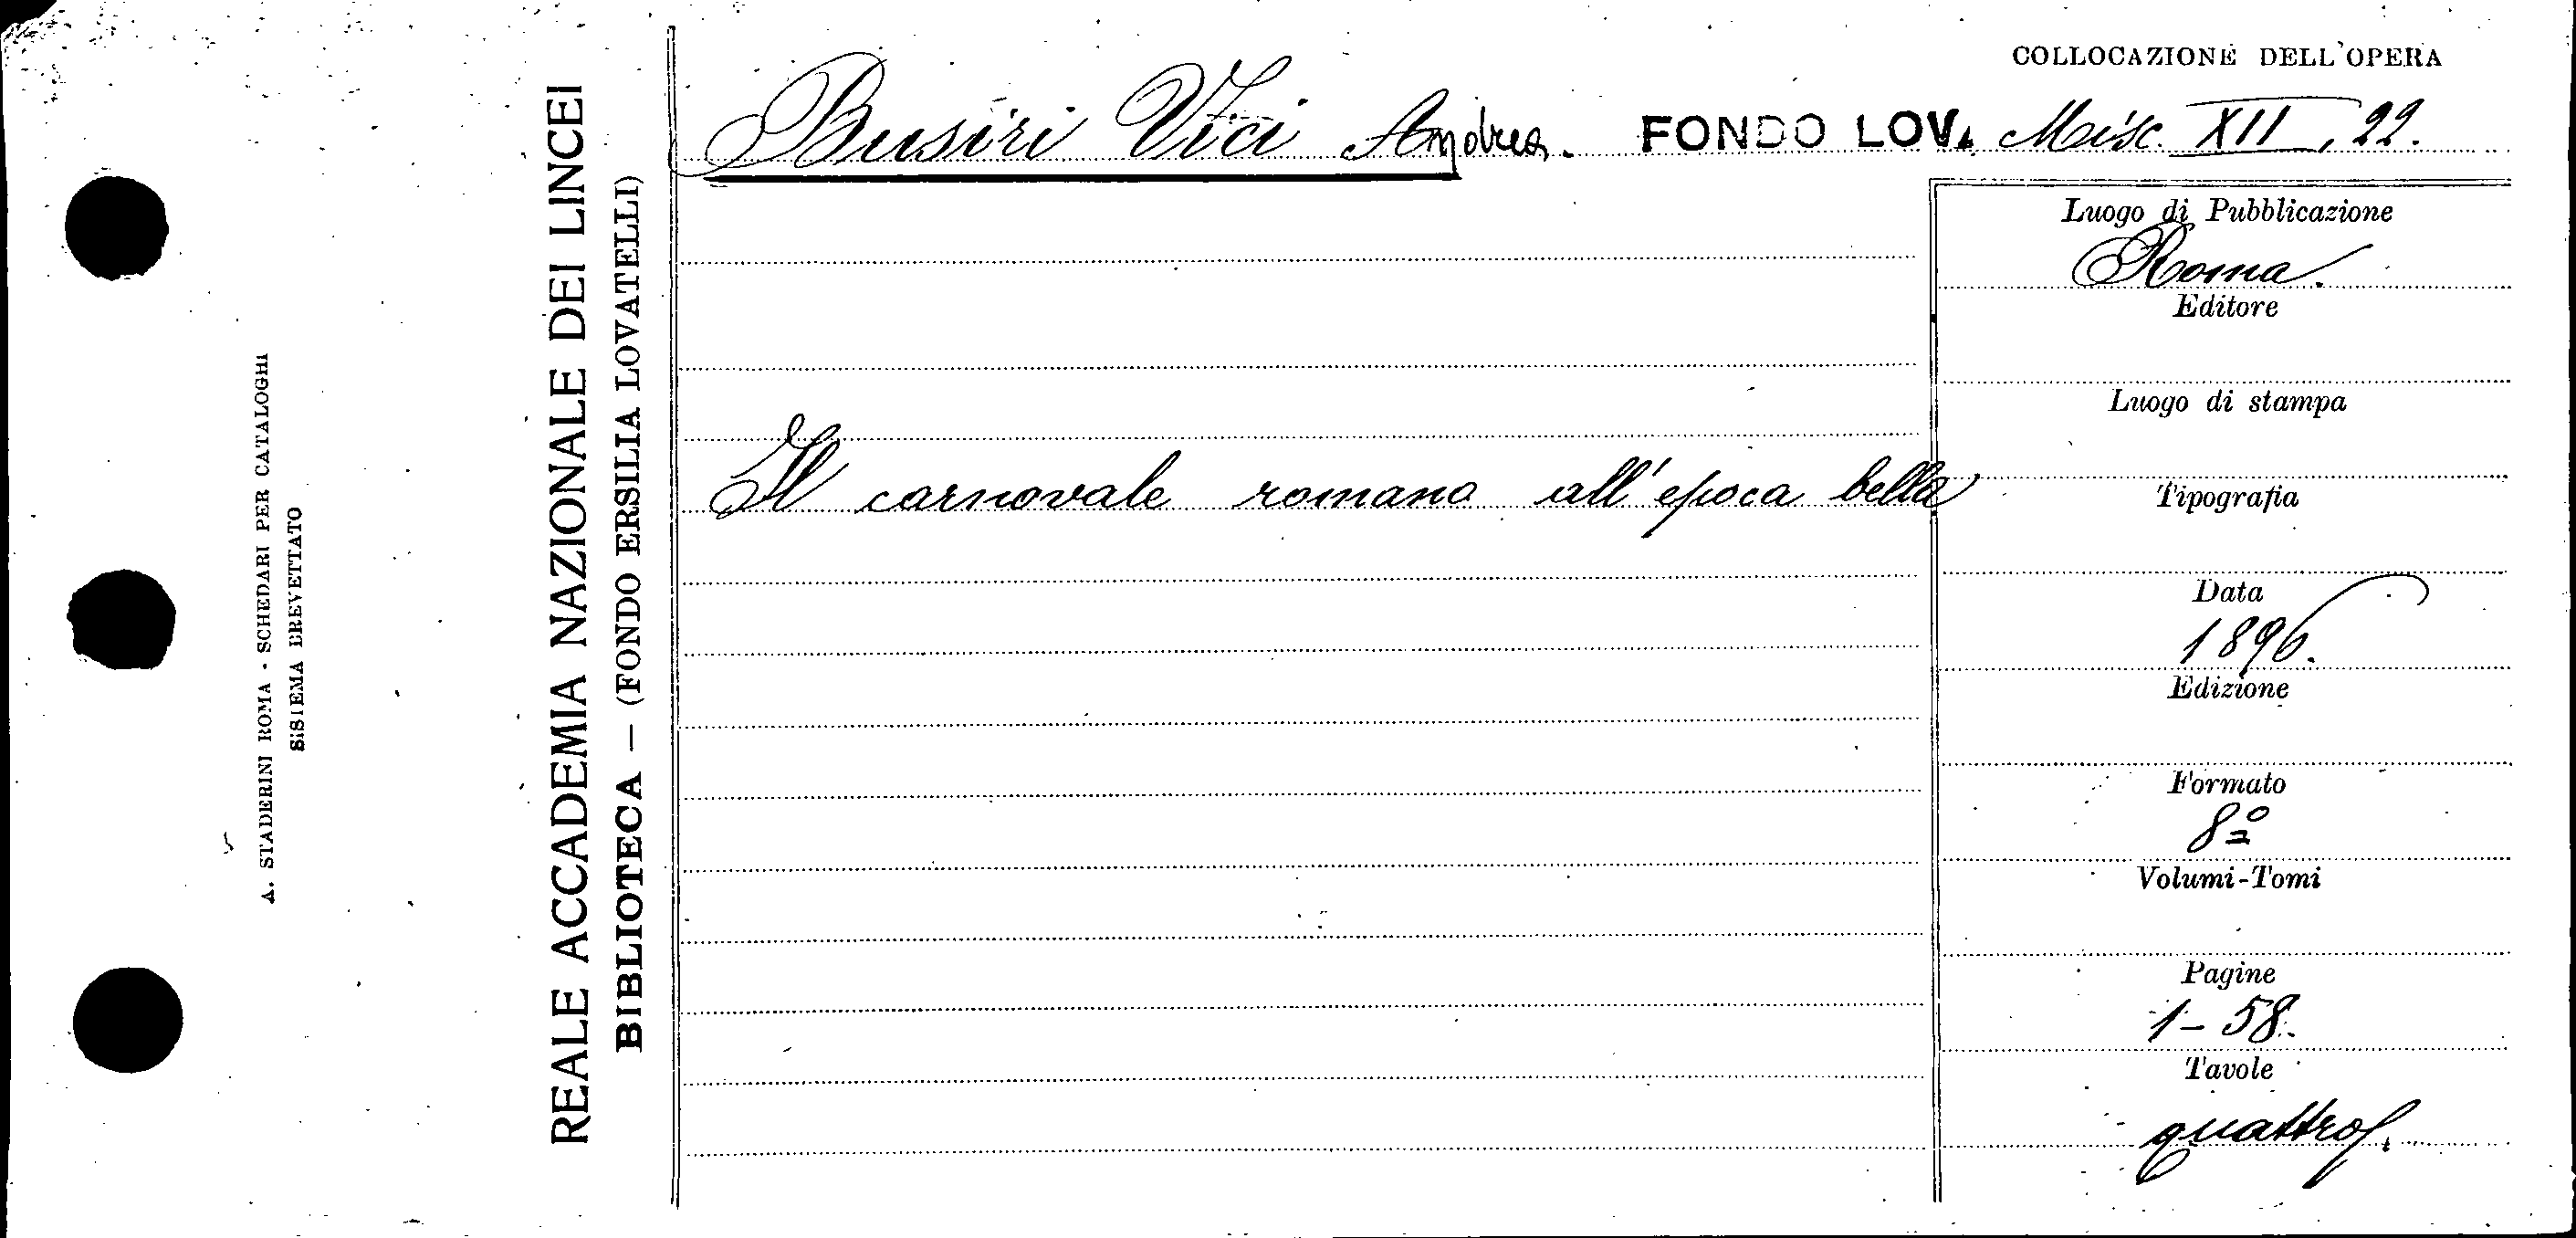 COLLOCAZIONE DELL'OPERA
Busiri Vici Andrea. FONDO LOV. Misc. XII, 22.
Luogo di Pubblicazione
Roma.
Editore
Luogo di stampa
Il carnovale romano all'epoca bella
Tipografia
Data
1896.
Edizione
Formato
8º
Volumi-Tomi
Pagine
1-58.
Tavole
quattro
REALE ACCADEMIA NAZIONALE DEI LINCEI
BIBLIOTECA — (FONDO ERSILIA LOVATELLI)
A. STADERINI ROMA - SCHEDARI PER CATALOGHI
SISTEMA BREVETTATO